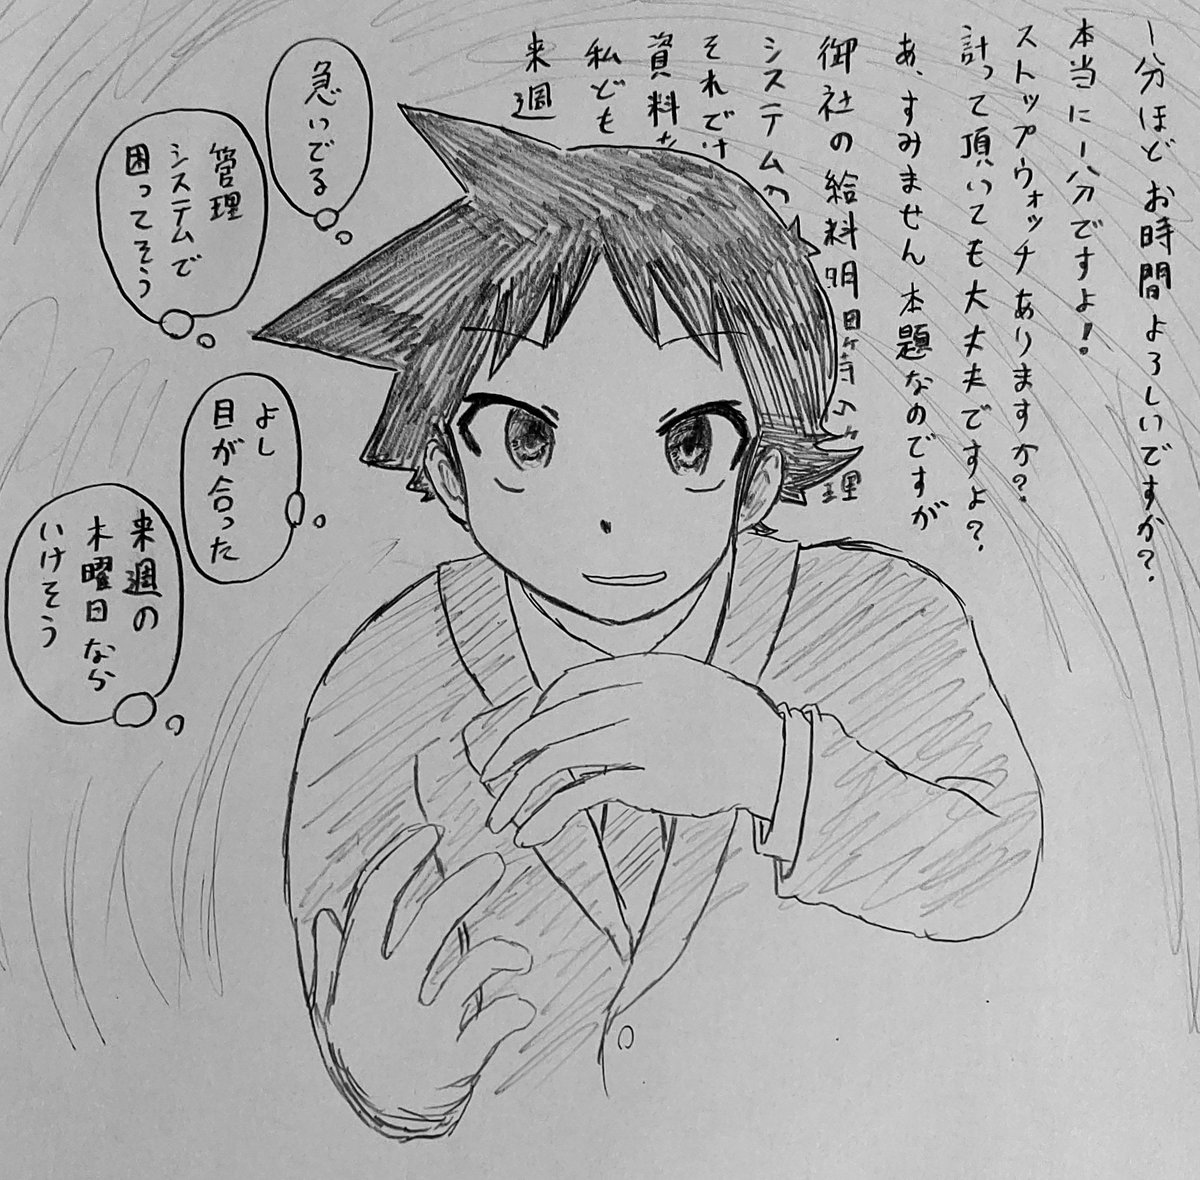 一分ほどお時間よろしいですか?
本当に一分ですよ!
ストップウォッチありますか?
計って頂いても大丈夫ですよ?
あ、すみません本題なのですが
御社の給料明日等の
理
システムの
それでは
資料
私ども
来週
急いでる
管理
システムで
困ってそう
よし
目が合った
来週の
木曜日なら
いけそう